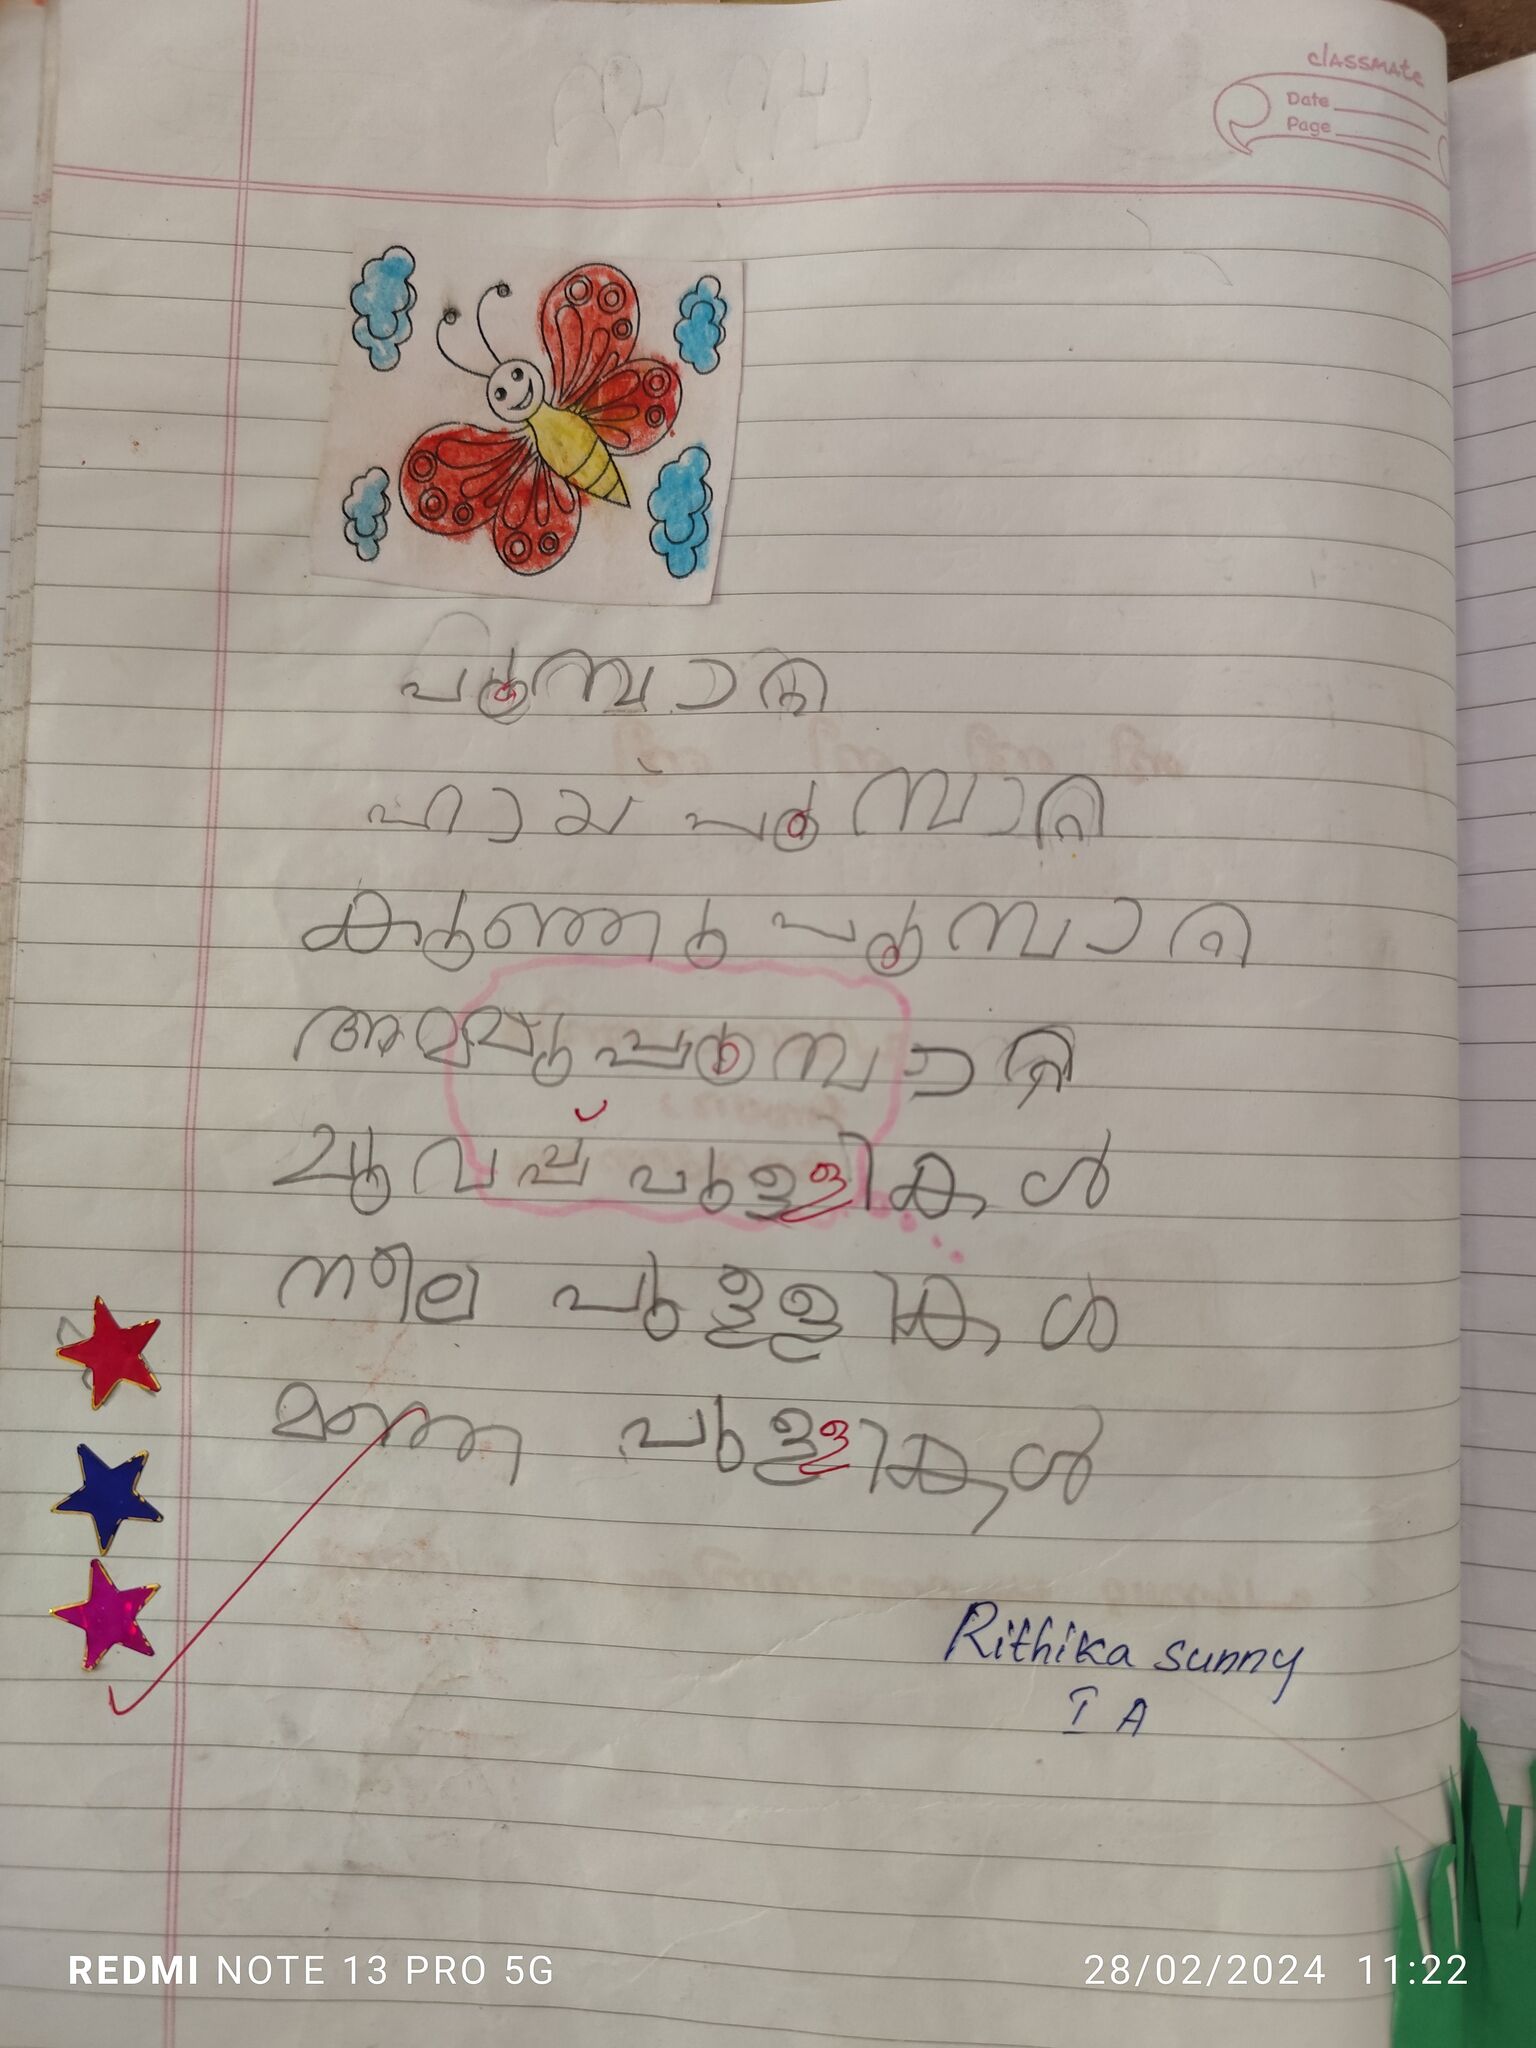 classmate
Date
Page
പൂമ്പാറ്റ
ഹായ് പൂമ്പാറ്റ
കുഞ്ഞു പൂമ്പാറ്റ
അമ്മു പൂമ്പാറ്റ
ചുവപ്പ് പുള്ളികൾ
നീല പുള്ളികൾ
മഞ്ഞ പുള്ളികൾ
Rithika sunny
I A
REDMI NOTE 13 PRO 5G
28/02/2024 11:22